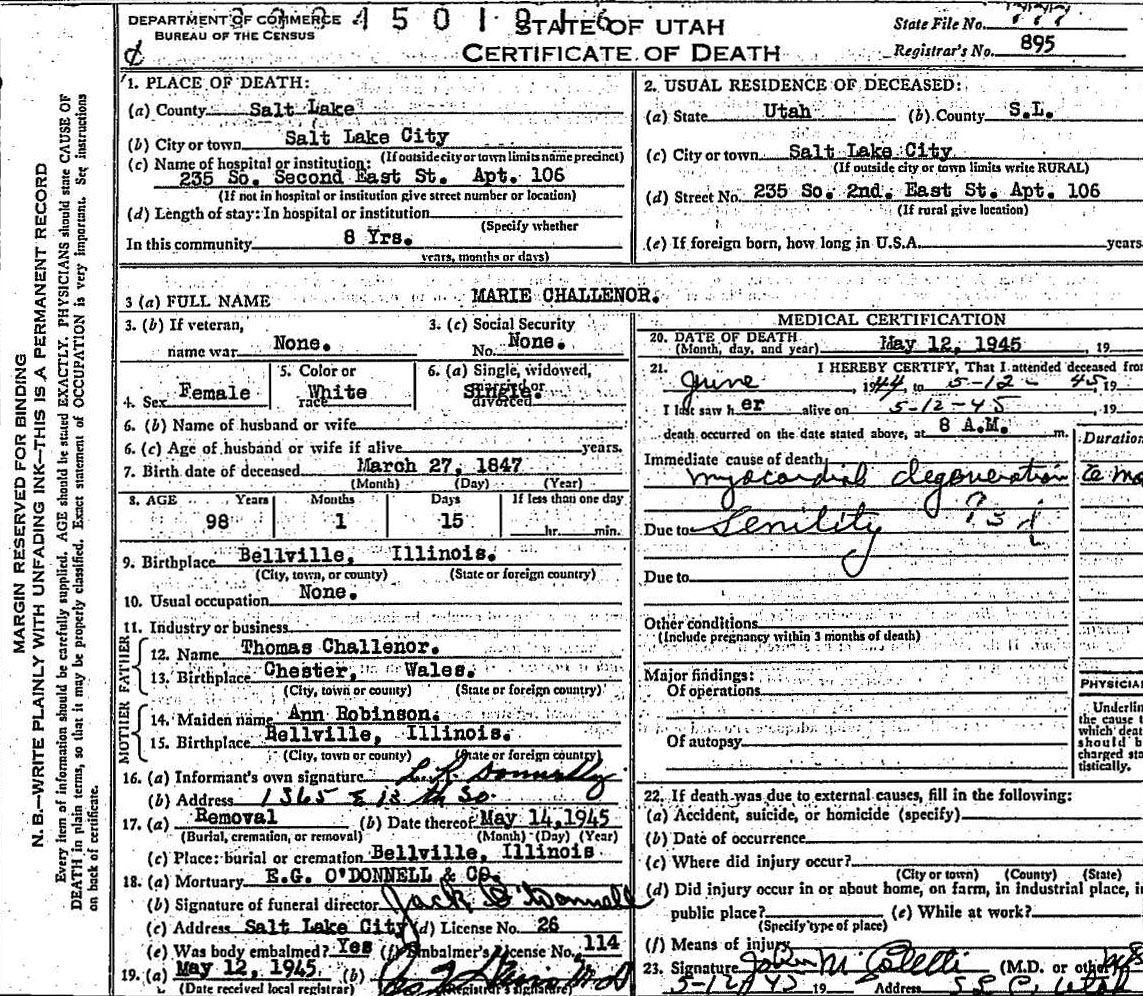 DEPARTMENT OF COMMERCE
BUREAU OF THE CENSUS
STATE OF UTAH
CERTIFICATE OF DEATH
State File No.
Registrar's No. 895
MARGIN RESERVED FOR BINDING
N. B.—WRITE PLAINLY WITH UNFADING INK—THIS IS A PERMANENT RECORD
Every item of information should be carefully supplied. AGE should be stated EXACTLY. PHYSICIANS should state CAUSE OF
DEATH in plain terms, so that it may be properly classified. Exact statement of OCCUPATION is very important. See instructions
on back of certificate.
1. PLACE OF DEATH:
(a) County Salt Lake
(b) City or town Salt Lake City
(If outside city or town limits name precinct)
(c) Name of hospital or institution:
235 So. Second East St. Apt. 106
(If not in hospital or institution give street number or location)
(d) Length of stay: In hospital or institution
(Specify whether
In this community 8 Yrs.
years, months or days)
2. USUAL RESIDENCE OF DECEASED:
(a) State Utah (b) County S.L.
(c) City or town Salt Lake City
(If outside city or town limits write RURAL)
(d) Street No. 235 So. 2nd. East St. Apt. 106
(If rural give location)
(e) If foreign born, how long in U.S.A. years.
3 (a) FULL NAME MARIE CHALLENOR.
3. (b) If veteran, name war None.
3. (c) Social Security No. None.
4. Sex Female
5. Color or race White
6. (a) Single, widowed, married or divorced Single.
6. (b) Name of husband or wife
6. (c) Age of husband or wife if alive years.
7. Birth date of deceased March 27, 1847
(Month) (Day) (Year)
8. AGE Years Months Days If less than one day
98 1 15 hr. min.
9. Birthplace Bellville, Illinois.
(City, town, or county) (State or foreign country)
10. Usual occupation None.
11. Industry or business
FATHER
12. Name Thomas Challenor.
13. Birthplace Chester, Wales.
(City, town or county) (State or foreign country)
MOTHER
14. Maiden name Ann Robinson.
15. Birthplace Bellville, Illinois.
(City, town or county) (State or foreign country)
16. (a) Informant's own signature L. R. Donnelly
(b) Address 1365 E 13 th So.
17. (a) Removal (b) Date thereof May 14, 1945
(Burial, cremation, or removal) (Month) (Day) (Year)
(c) Place: burial or cremation Bellville, Illinois
18. (a) Mortuary E.G. O'DONNELL & CO.
(b) Signature of funeral director Jack O'Donnell
(c) Address Salt Lake City (d) License No. 26
(e) Was body embalmed? Yes (f) Embalmer's License No. 114
19. (a) May 12, 1945 (b)
(Date received local registrar) (Registrar's signature)
MEDICAL CERTIFICATION
20. DATE OF DEATH
(Month, day, and year) May 12, 1945, 19
21. I HEREBY CERTIFY, That I attended deceased from
June 1944, to 5-12-45 19
I last saw her alive on 5-12-45, 19
death occurred on the date stated above, at 8 A.M. m.
Duration
Immediate cause of death
myocardial degeneration
Due to Senility
Due to
Other conditions
(Include pregnancy within 3 months of death)
Major findings:
Of operations
Of autopsy
PHYSICIAN
Underlin
the cause t
which deat
should b
charged sta
tistically.
22. If death was due to external causes, fill in the following:
(a) Accident, suicide, or homicide (specify)
(b) Date of occurrence
(c) Where did injury occur?
(City or town) (County) (State)
(d) Did injury occur in or about home, on farm, in industrial place, in
public place? (e) While at work?
(Specify type of place)
(f) Means of injury
23. Signature John M (M.D. or other)
5-12-45 19 Address S L C, Utah